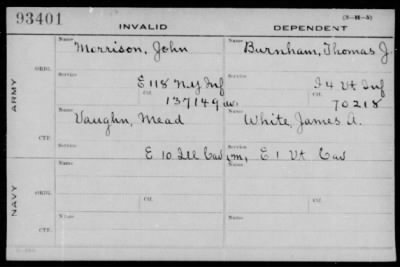 93401
INVALID DEPENDENT (3-H-5)
Name Name
Morrison, John Burnham, Thomas J
ORIG.
Service Service
E 118 N.Y. Inf I 4 Vt Inf
Ctf. Ctf.
137149 70218
ARMY
Name Name
Vaughn, Mead White, James A.
CTF.
Service Service
E 10 Ill Cav E 1 Vt Cav
Name Name
ORIG.
Service Service
Ctf. Ctf.
NAVY
Name Name
CTF.
Service Service